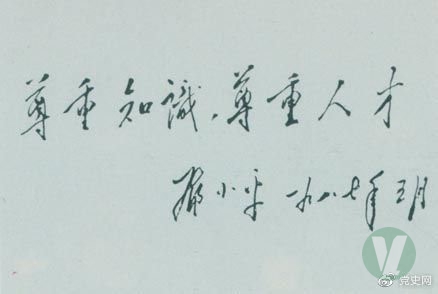 尊重知識，尊重人才
邓小平 一九八七年五月
V
党史网